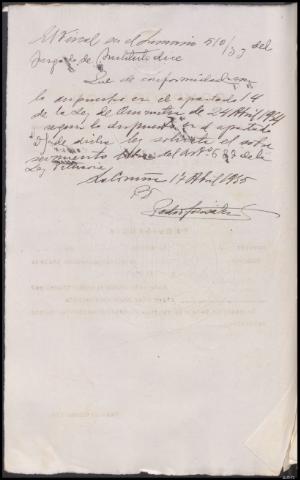 El Fiscal en el sumario 510/33 del
Juzgado de Instrucción dice
Que de conformidad con
lo dispuesto en el apartado 14
de la Ley de Amnistía de 24 Abril 1934
segun lo dispuesto en el apartado
de dicha Ley solicita el sobre
seimiento libre del artº 637 de la
Ley Rituaria
La Coruña 17 Abril 1935